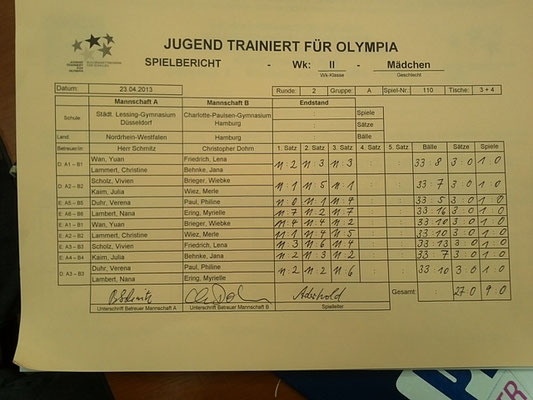 JUGEND TRAINIERT FÜR OLYMPIA
SPIELBERICHT - Wk: II - Mädchen
Wk-Klasse Geschlecht
Datum: 23.04.2013 Runde: 2 Gruppe: A Spiel-Nr. 110 Tische: 3 + 4
Mannschaft A Mannschaft B Endstand
Schule Städt. Lessing-Gymnasium Düsseldorf Charlotte-Paulsen-Gymnasium Hamburg : Spiele
: Sätze
Land. Nordrhein-Westfalen Hamburg : Bälle
Betreuer/in Herr Schmitz Christopher Dohm 1. Satz 2. Satz 3. Satz 4. Satz 5. Satz Bälle Sätze Spiele
D: A1 – B1 Wan, Yuan Friedrich, Lena 11 2 11 3 11 3 : : 33 8 3 0 1 0
Lammert, Christine Behnke, Jana
D: A2 – B2 Scholz, Vivien Brieger, Wiebke 11 1 11 5 11 1 : : 33 7 3 0 1 0
Kaim, Julia Wiez, Merle
E: A5 – B5 Duhr, Verena Paul, Philine 11 0 11 1 11 4 : : 33 5 3 0 1 0
E: A6 – B6 Lambert, Nana Ering, Myrielle 11 7 11 2 11 7 : : 33 16 3 0 1 0
E: A1 – B1 Wan, Yuan Brieger, Wiebke 11 4 11 4 11 2 : : 33 10 3 0 1 0
E: A2 – B2 Lammert, Christine Wiez, Merle 11 1 11 4 11 5 : : 33 10 3 0 1 0
E: A3 – B3 Scholz, Vivien Friedrich, Lena 11 3 11 6 11 4 : : 33 13 3 0 1 0
E: A4 – B4 Kaim, Julia Behnke, Jana 11 2 11 3 11 2 : : 33 7 3 0 1 0
D: A3 – B3 Duhr, Verena Paul, Philine 11 2 11 2 11 6 : : 33 10 3 0 1 0
Lambert, Nana Ering, Myrielle
Gesamt: : 27 0 9 0
Unterschrift Betreuer Mannschaft A Unterschrift Betreuer Mannschaft B Spielleiter